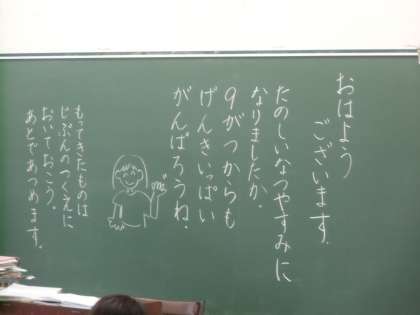 おはよう
ございます。
たのしいなつやすみに
なりましたか。
9がつからも
げんきいっぱい
がんばろうね。
もってきたものは
じぶんのつくえに
おいておこう。
あとであつめます。